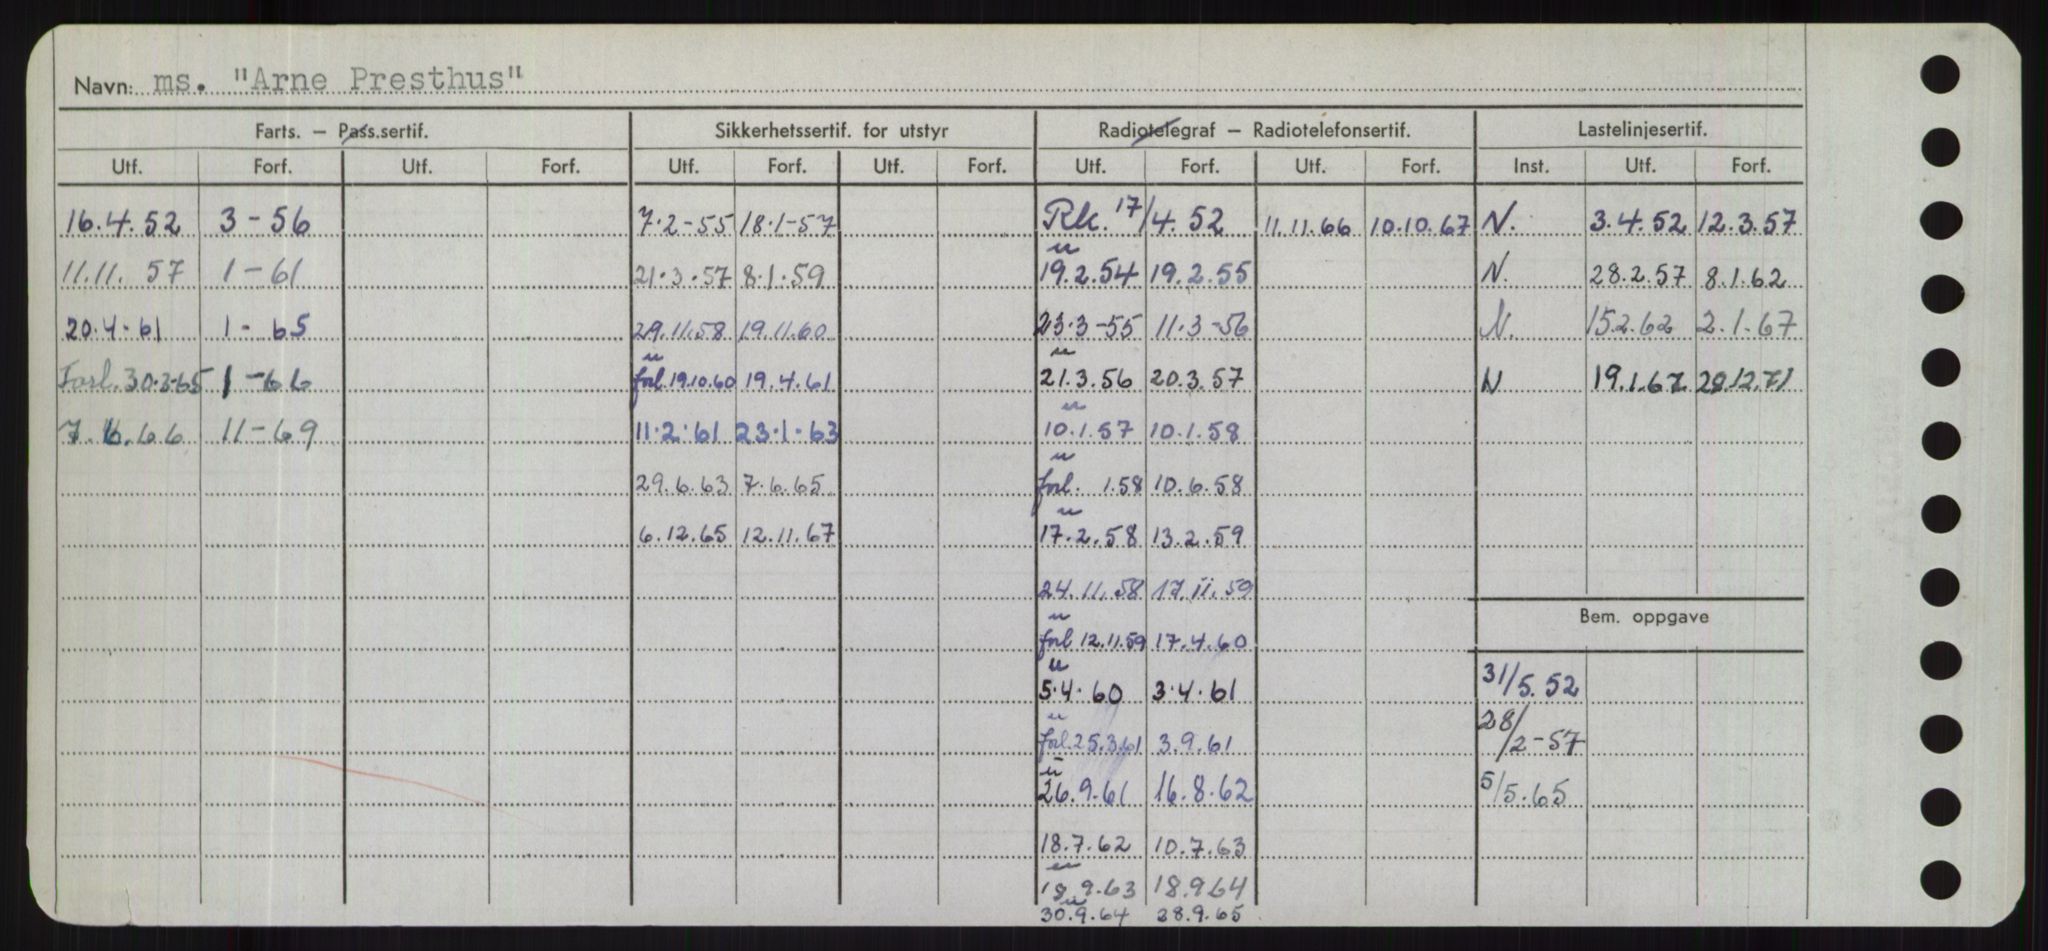 Navn: ms. "Arne Presthus"
Farts. – Pass.sertif. Sikkerhetssertif. for utstyr Radiotelegraf – Radiotelefonsertif. Lastelinjesertif.
Utf. Forf. Utf. Forf. Utf. Forf. Utf. Forf. Utf. Forf. Utf. Forf. Inst. Utf. Forf.
16.4.52 3-56 7.2-55 18.1-57 Rk. 17/4.52 11.11.66 10.10.67 N. 3.4.52 12.3.57
11.11. 57 1-61 21.3.57 8.1.59 " 19.2.54 19.2.55 N. 28.2.57 8.1.62
20.4.61 1-65 29.11.58 19.11.60 23.3-55 11.3-56 N. 15.2.62 2.1.67
Forl. 30.3-65 1-66 " forl. 19.10.60 19.4.61 " 21.3.56 20.3.57 N 19.1.67 28.12.71
7.6.66 11-69 11.2.61 23.1.63 " 10.1.57 10.1.58
29.6.63 7.6.65 " forl. 1.58 10.6.58
6.12.65 12.11.67 " 17.2.58 13.2.59
24.11.58 17.11.59
Bem. oppgave
" forl 12.11.59 17.4.60
" 5.4.60 3.4.61 31/5.52
" forl. 25.3.61 3.9.61 28/2-57
" 26.9.61 16.8.62 5/5.65
18.7.62 10.7.63
" 18.9.63 18.9.64
" 30.9.64 28.9.65